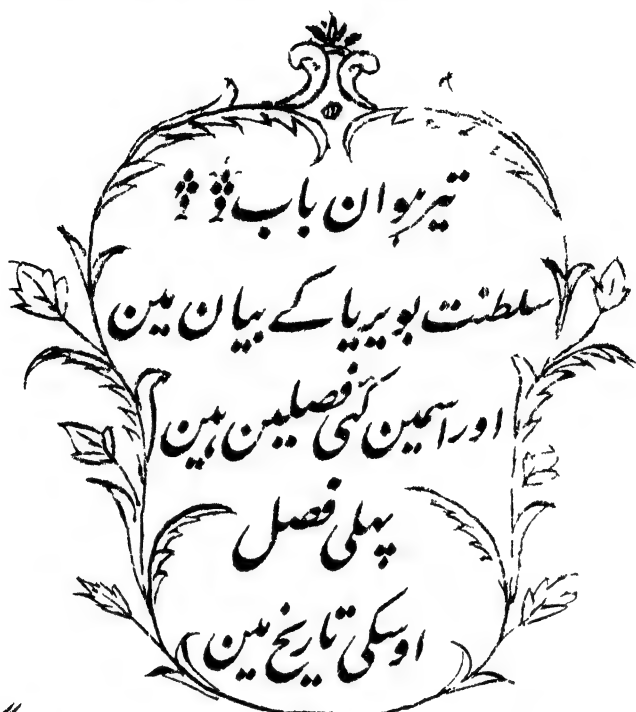 تیرہوان باب
سلطنت بویریا کے بیان مین
اور اسمین کئی فصلین ہین
پہلی فصل
اوسکی تاریخ مین